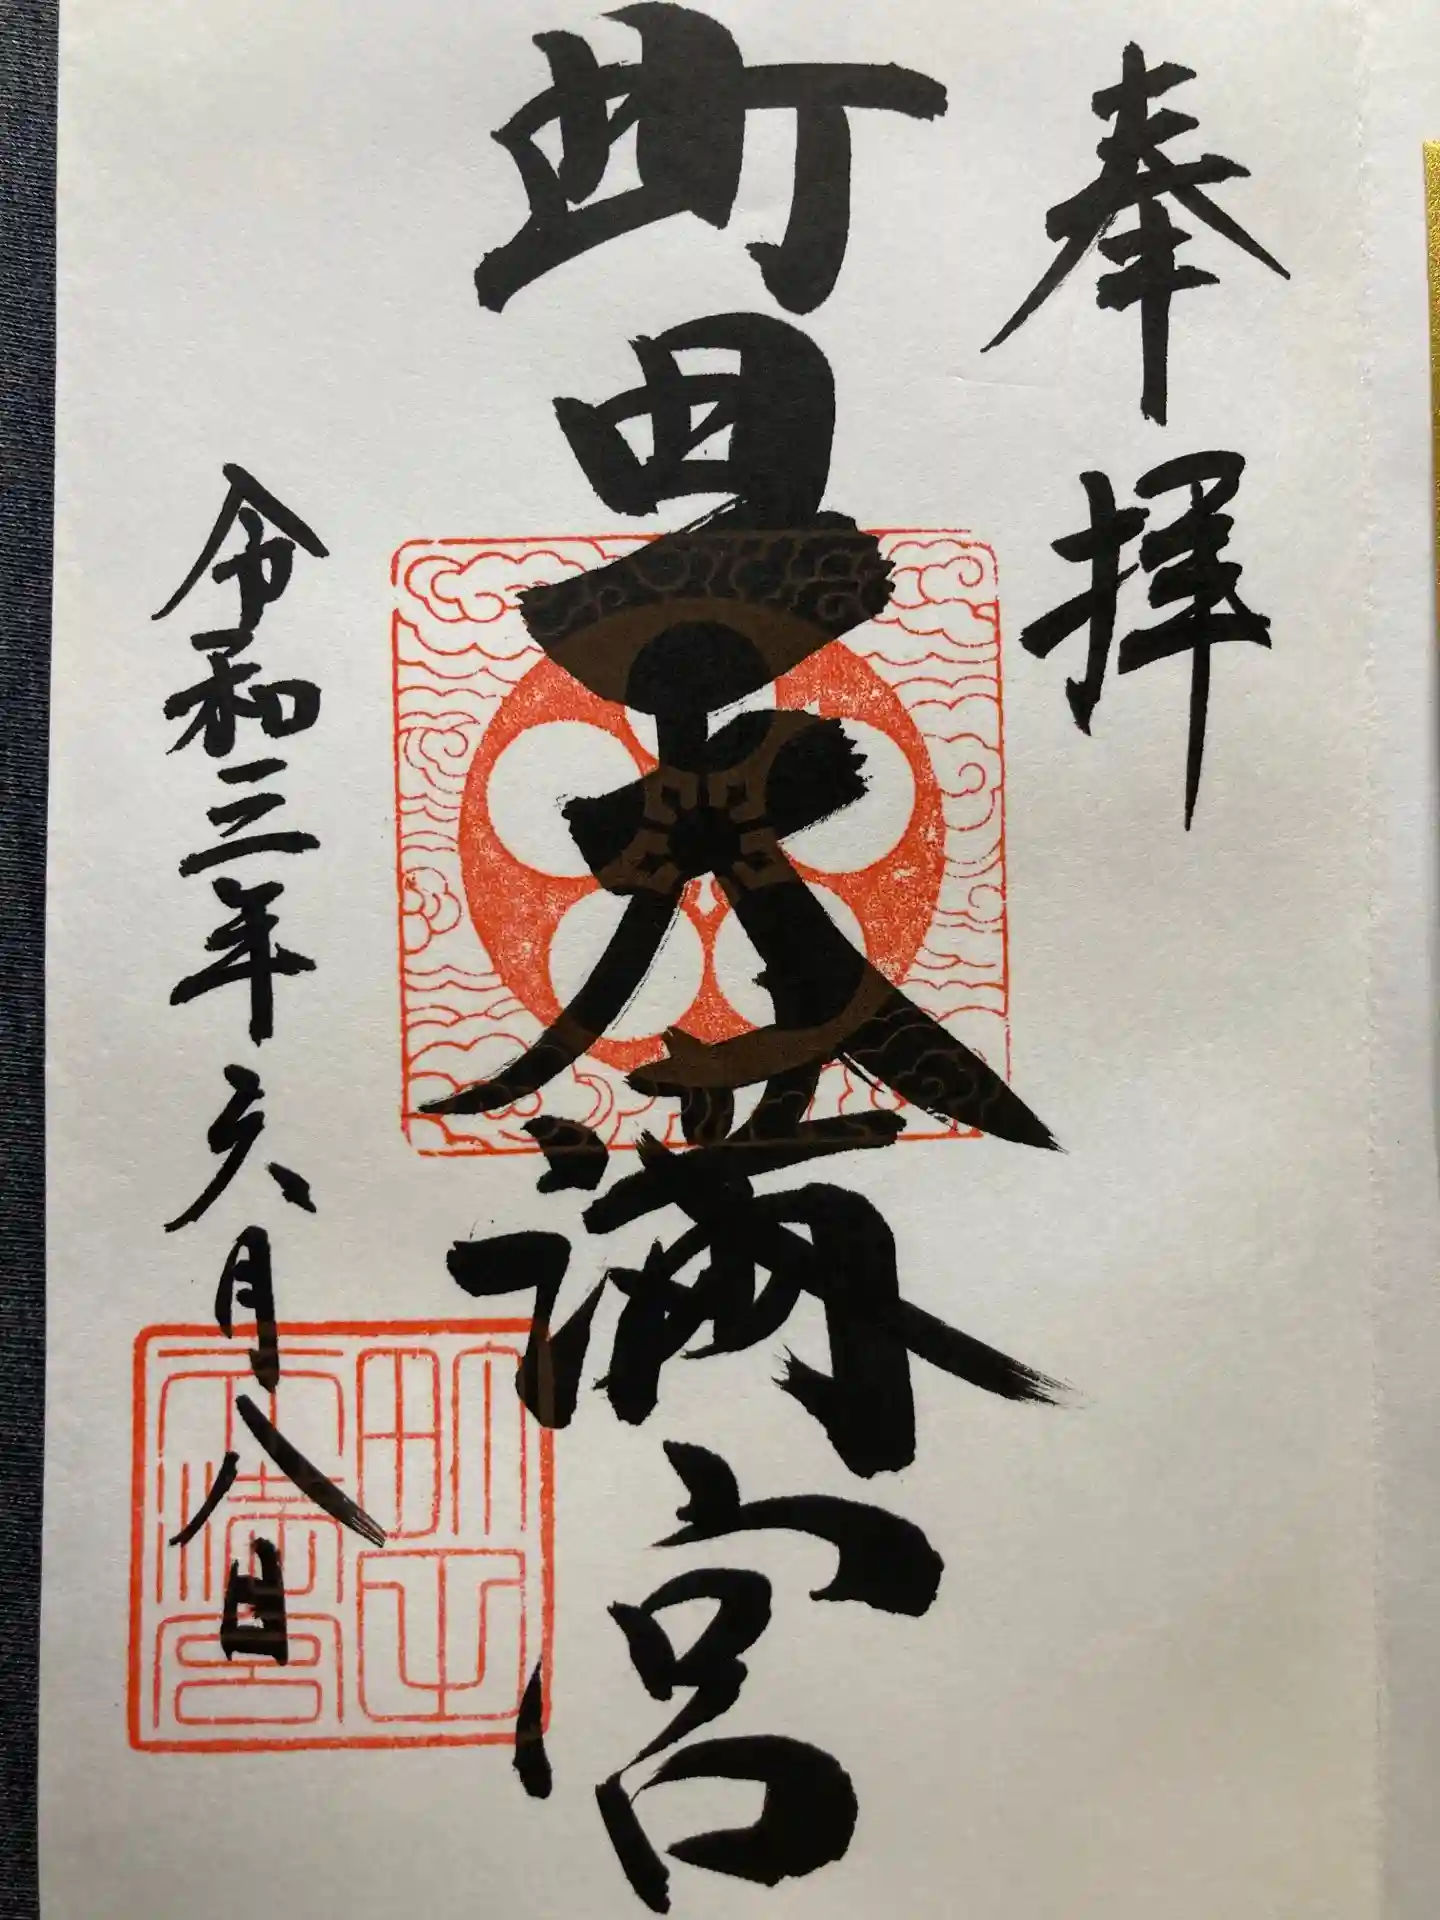 奉拝
町田天満宮
令和三年六月八日
町田
天満宮